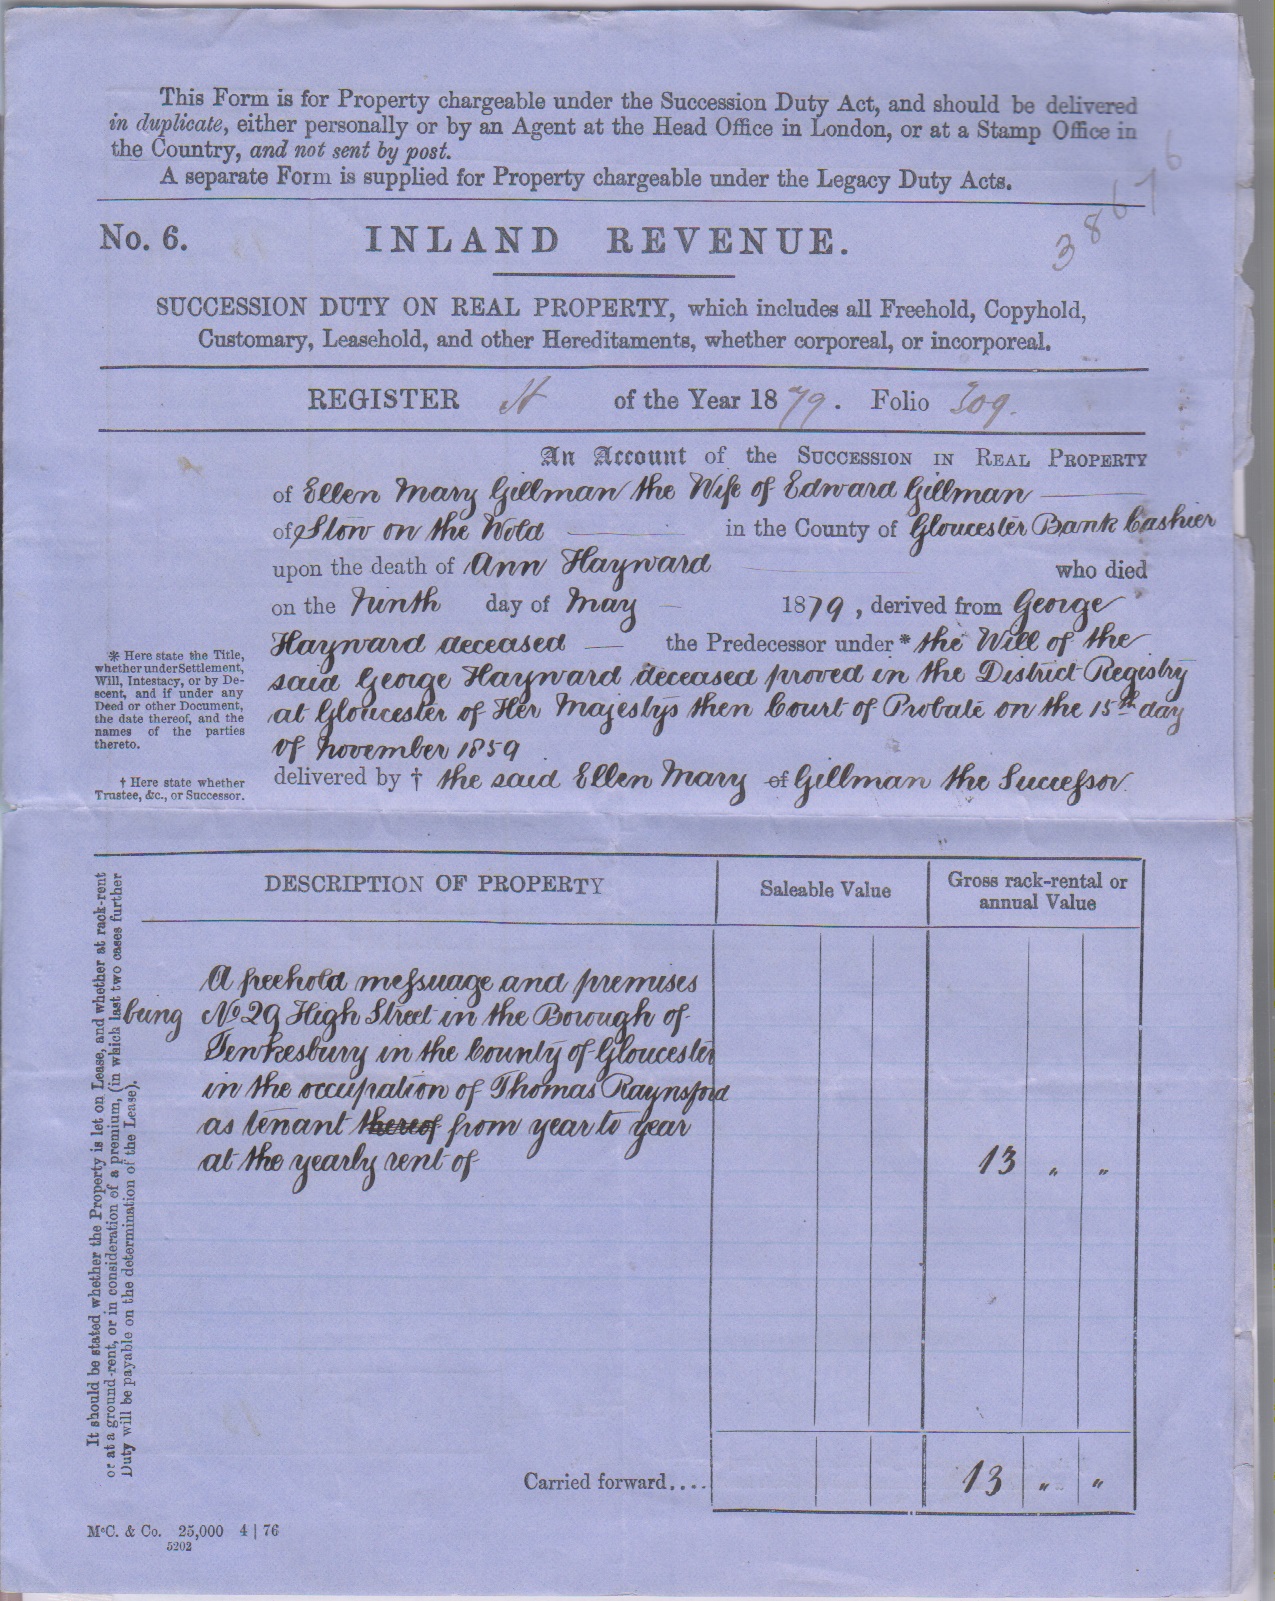 This Form is for Property chargeable under the Succession Duty Act, and should be delivered
in duplicate, either personally or by an Agent at the Head Office in London, or at a Stamp Office in
the Country, and not sent by post.
A separate Form is supplied for Property chargeable under the Legacy Duty Acts.
38676
No. 6. INLAND REVENUE.
SUCCESSION DUTY ON REAL PROPERTY, which includes all Freehold, Copyhold,
Customary, Leasehold, and other Hereditaments, whether corporeal, or incorporeal.
REGISTER of the Year 1879. Folio 309.
An Account of the SUCCESSION IN REAL PROPERTY
of Ellen Mary Gillman the Wife of Edward Gillman
of Stow on the Wold in the County of Gloucester Bank Cashier
upon the death of Ann Hayward who died
on the Ninth day of May 1879, derived from George
Hayward deceased the Predecessor under * the Will of the
said George Hayward deceased proved in the District Registry
at Gloucester of Her Majestys then Court of Probate on the 15th day
of November 1859
delivered by † the said Ellen Mary of Gillman the Successor.
* Here state the Title,
whether under Settlement,
Will, Intestacy, or by De-
scent, and if under any
Deed or other Document,
the date thereof, and the
names of the parties
thereto.
† Here state whether
Trustee, &c., or Successor.
DESCRIPTION OF PROPERTY
Saleable Value
Gross rack-rental or
annual Value
It should be stated whether the Property is let on Lease, and whether at rack-rent
or at a ground-rent, or in consideration of a premium, (in which last two cases further
Duty will be payable on the determination of the Lease).
A freehold messuage and premises
being No 29 High Street in the Borough of
Tewkesbury in the County of Gloucester
in the occupation of Thomas Raynsford
as tenant thereof from year to year
at the yearly rent of 13 " "
Carried forward.... 13 " "
McC. & Co. 25,000 4 | 76
5202